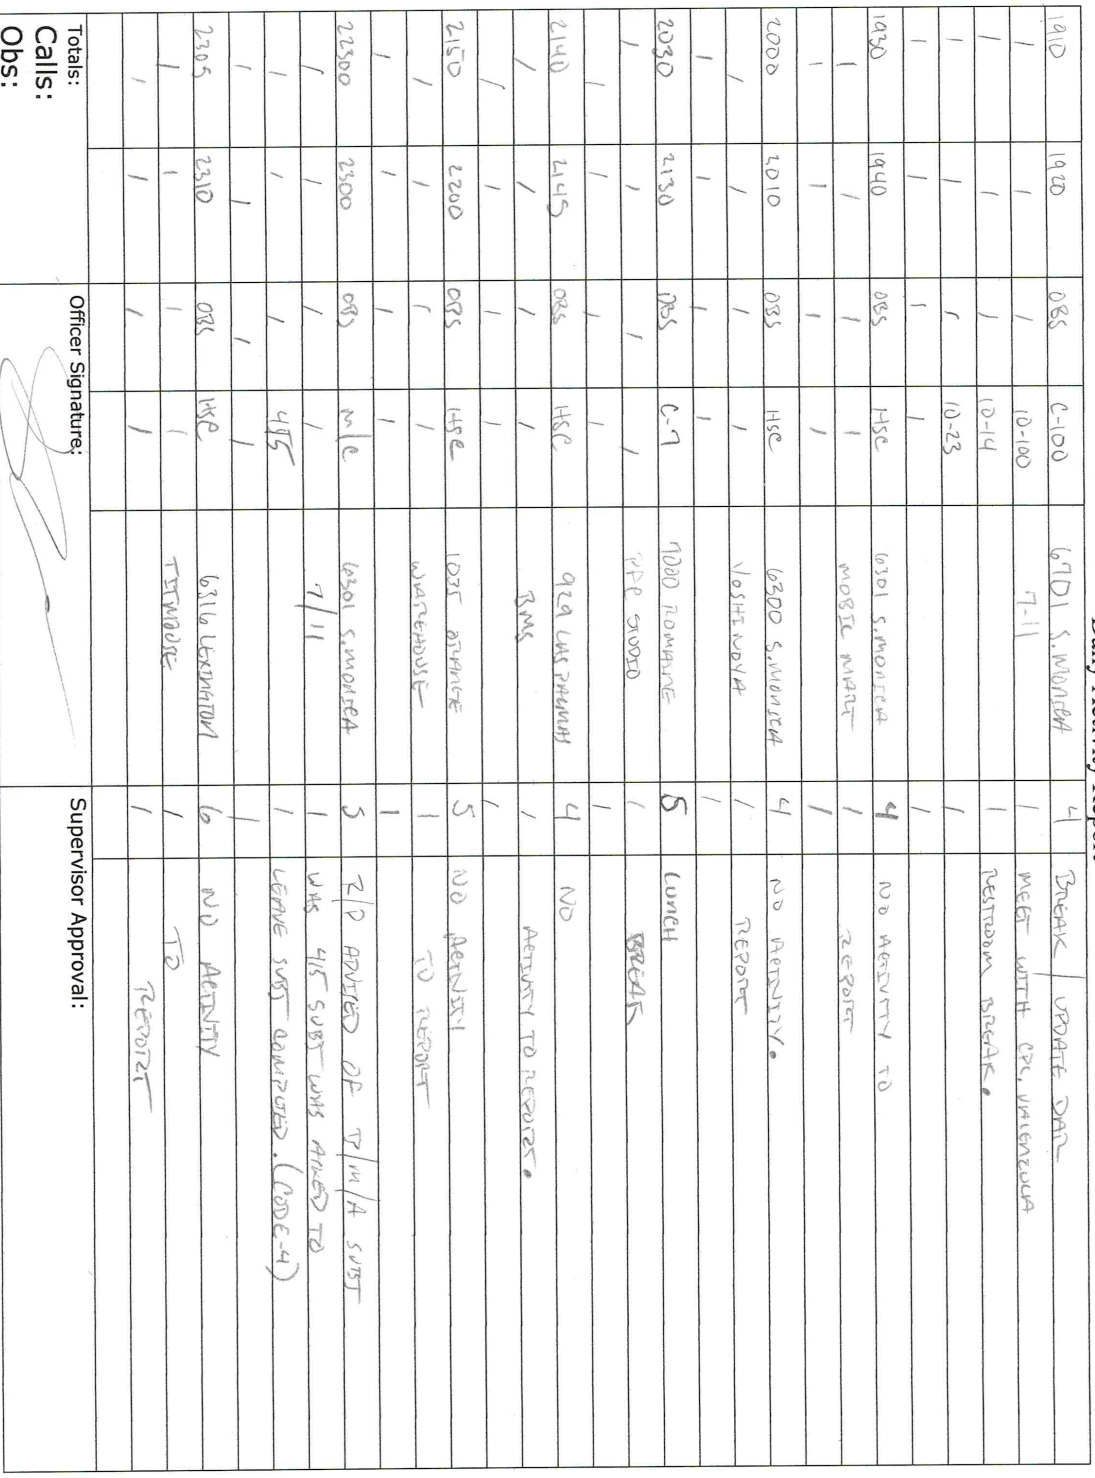 Daily Activity Report
1910 1920 OBS C-100 6701 S. MONICA 4 BREAK / UPDATE DAR
/ / / 10-100 7-11 / MEET WITH CPL. VALENZUELA
/ / / 10-14 / RESTROOM BREAK.
/ / / 10-23 /
/ / / / /
1930 1940 OBS HSC 6301 S. MONICA 4 NO ACTIVITY TO
/ / / / MOBIL MART / REPORT
/ / / / /
2000 2010 OBS HSC 6300 S. MONICA 4 NO ACTIVITY.
/ / / / YOSHINOYA / REPORT
/ / / / /
2030 2130 OBS C-7 7000 ROMAINE 5 LUNCH
/ / / / STUDIO / BREAK
/ / / / /
2140 2145 OBS HSC 929 LAS PALMAS 4 NO
/ / / / BMS / ACTIVITY TO REPORT.
/ / / / /
2150 2200 OBS HSC 1035 ORANGE 5 NO ACTIVITY
/ / / / WHAREHOUSE / TO REPORT
/ / / / /
22300 2300 OBS M/C 6301 S. MONICA 5 R/P ADVISED OF D/M/A SUBJ
/ / / / 7/11 / WAS 415 SUBJ WAS ASKED TO
/ / / 415 / LEAVE SUBJ COMPLETED. (CODE-4)
/ / / / /
2305 2310 OBS HSC 6316 LEXINGTON 6 NO ACTIVITY
/ / / / TITMOUSE / TO
/ / / / / REPORT
Totals:
Calls:
Obs:
Officer Signature:
Supervisor Approval: